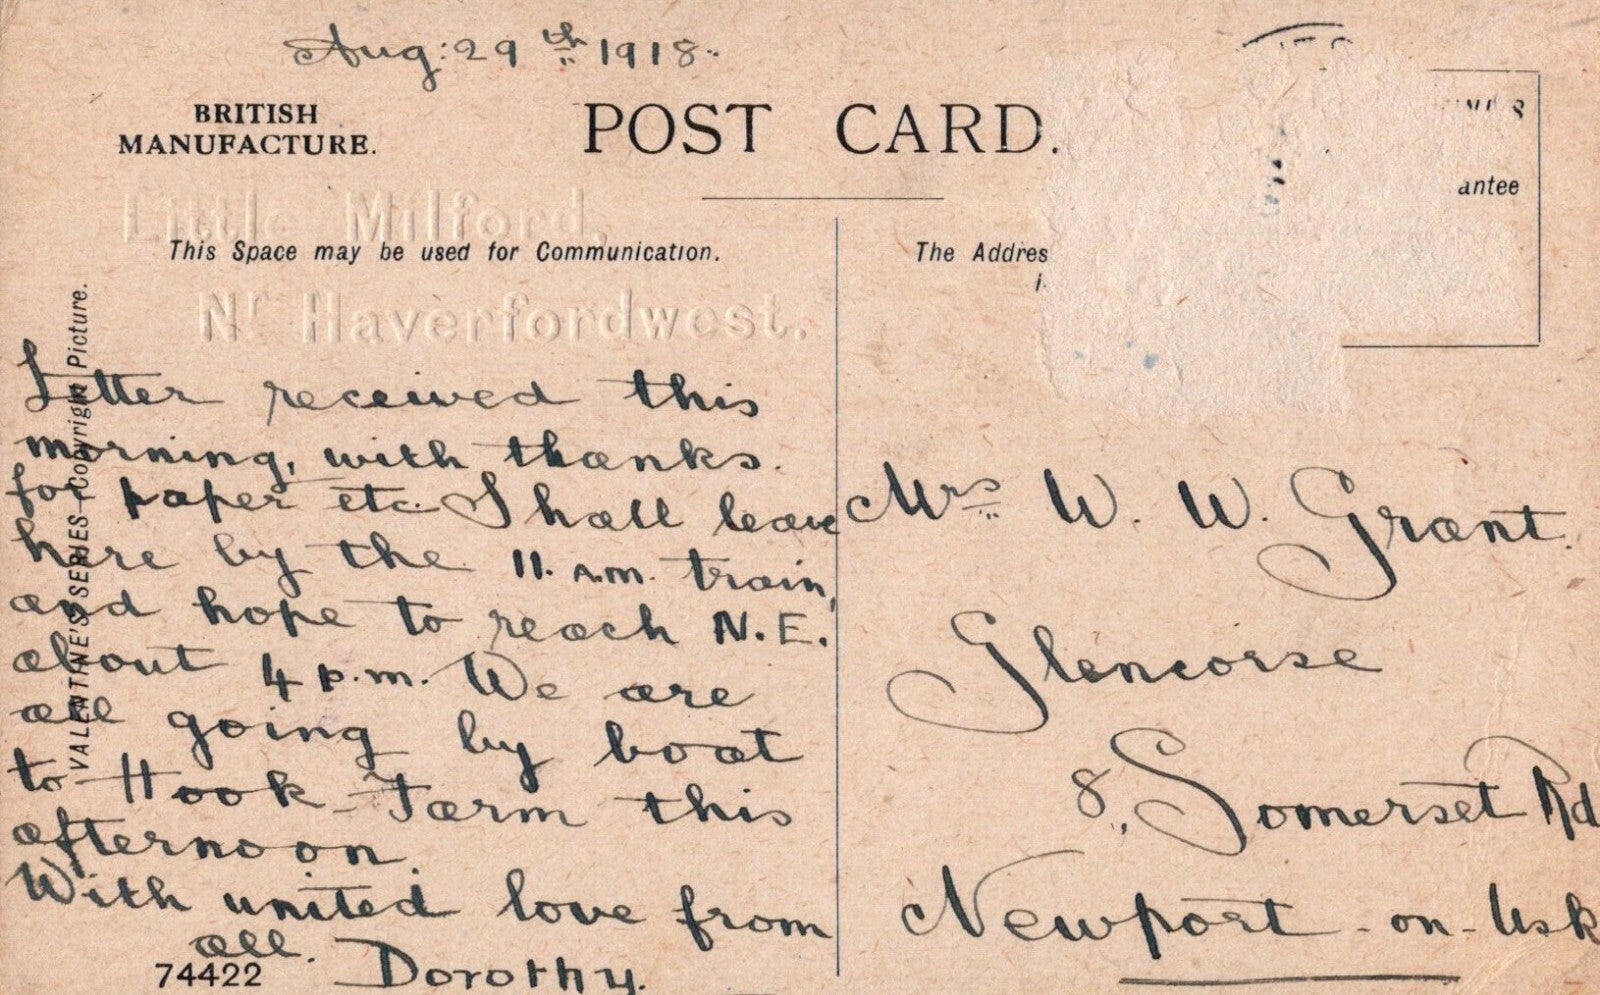 Aug: 29th 1918.
BRITISH
MANUFACTURE.
POST CARD.
Little Milford,
Nr Haverfordwest.
This Space may be used for Communication.
The Addres
antee
VALENTINE'S SERIES—Copyright Picture.
Letter received this
morning, with thanks.
for paper etc. I shall leave
here by the 11. A.M. train,
and hope to reach N.E.
about 4 p.m. We are
all going by boat
to Hook Farm this
afternoon.
With united love from
all. Dorothy.
74422
Mrs W. W. Grant.
Glencorse
8, Somerset Rd
Newport - on - Usk